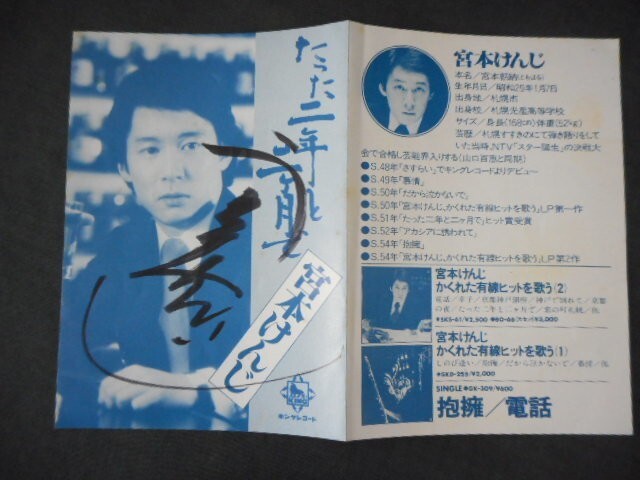 たった二年と二ヶ月で
宮本けんじ
キングレコード
宮本けんじ
生年月日/昭和25年1月7日
出身地/札幌市
出身校/札幌光星高等学校
サイズ/身長(168cm)体重(52kg)
芸歴/札幌すすきのにて弾き語りをして
いた当時、NTV"スター誕生"の決戦大
会で合格し芸能界入りする(山口百恵と同期)
●S.48年「さすらい」でキングレコードよりデビュー
●S.49年「慕情」
●S.50年「だから泣かないで」
●S.50年「宮本けんじ、かくれた有線ヒットを歌う」LP第一作
●S.51年「たった二年と二ヶ月で」ヒット賞受賞
●S.52年「アカシアに誘われて」
●S.54年「抱擁」
●S.54年「宮本けんじ、かくれた有線ヒットを歌う」LP第2作
宮本けんじ
かくれた有線ヒットを歌う(2)
の夜/たった二年と二ヶ月で/恋の町札幌/他
●SKS-61/¥2,500
宮本けんじ
かくれた有線ヒットを歌う(1)
しのび逢い/抱擁/だから泣かないで/慕情/他
●SKD-255/¥2,000
SINGLE●GK-309/¥600
抱擁/電話